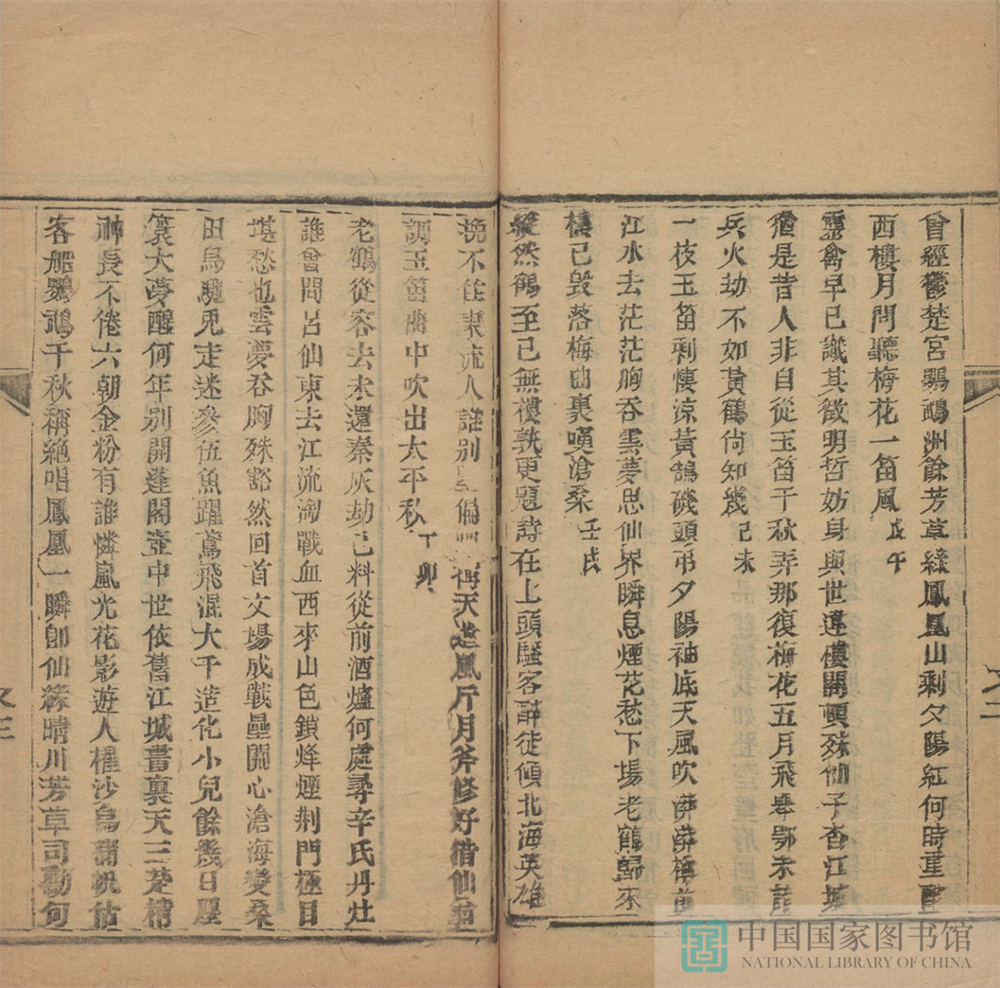 曾經鬱楚宮鸚鵡洲餘芳草綠鳳凰山剩夕陽紅何時重醉
西樓月問聽梅花一笛風 戊午
靈禽早已識其微明哲妨身與世違樓閣頓殊仙子杳江城
猶是昔人非自從玉笛千秋弄那復梅花五月飛舉鄂未
兵火劫不如黃鶴尚知幾 己未
一枝玉笛剩悽涼黃鵠磯頭弔夕陽袖底天風吹 前
江水去茫茫胸吞雲夢思仙界瞬息煙花愁下場老鶴歸來
樓已毀落梅曲裏嘆滄桑 壬戌
縱然鶴至已無樓孰更題詩在上頭騷客醉徒傾北海英雄
挽不住東流人誰別 天造風斤月斧修好借仙翁
調玉笛 中吹出太平秋 丁卯
老鶴從容去未還秦灰劫已料從前酒爐何處尋辛氏丹灶
誰曾問呂仙東去江流淘戰血西來山色鎖烽煙荊門極目
堪愁也雲夢吞胸殊豁然回首文場成戰壘關心滄海變桑
田烏飛兎走迷參伍魚躍鳶飛混大千造化小兒餘幾日
大夢醒何年別開蓬閣壺中世依舊江城畫裏天三楚
神長不倦六朝金粉有誰憐嵐光花影遊人櫂沙鳥 帆估
客船鸚鵡千秋稱絕唱鳳凰一瞬卽仙緣晴川芳草司勳句
文三
中国国家图书馆
NATIONAL LIBRARY OF CHINA